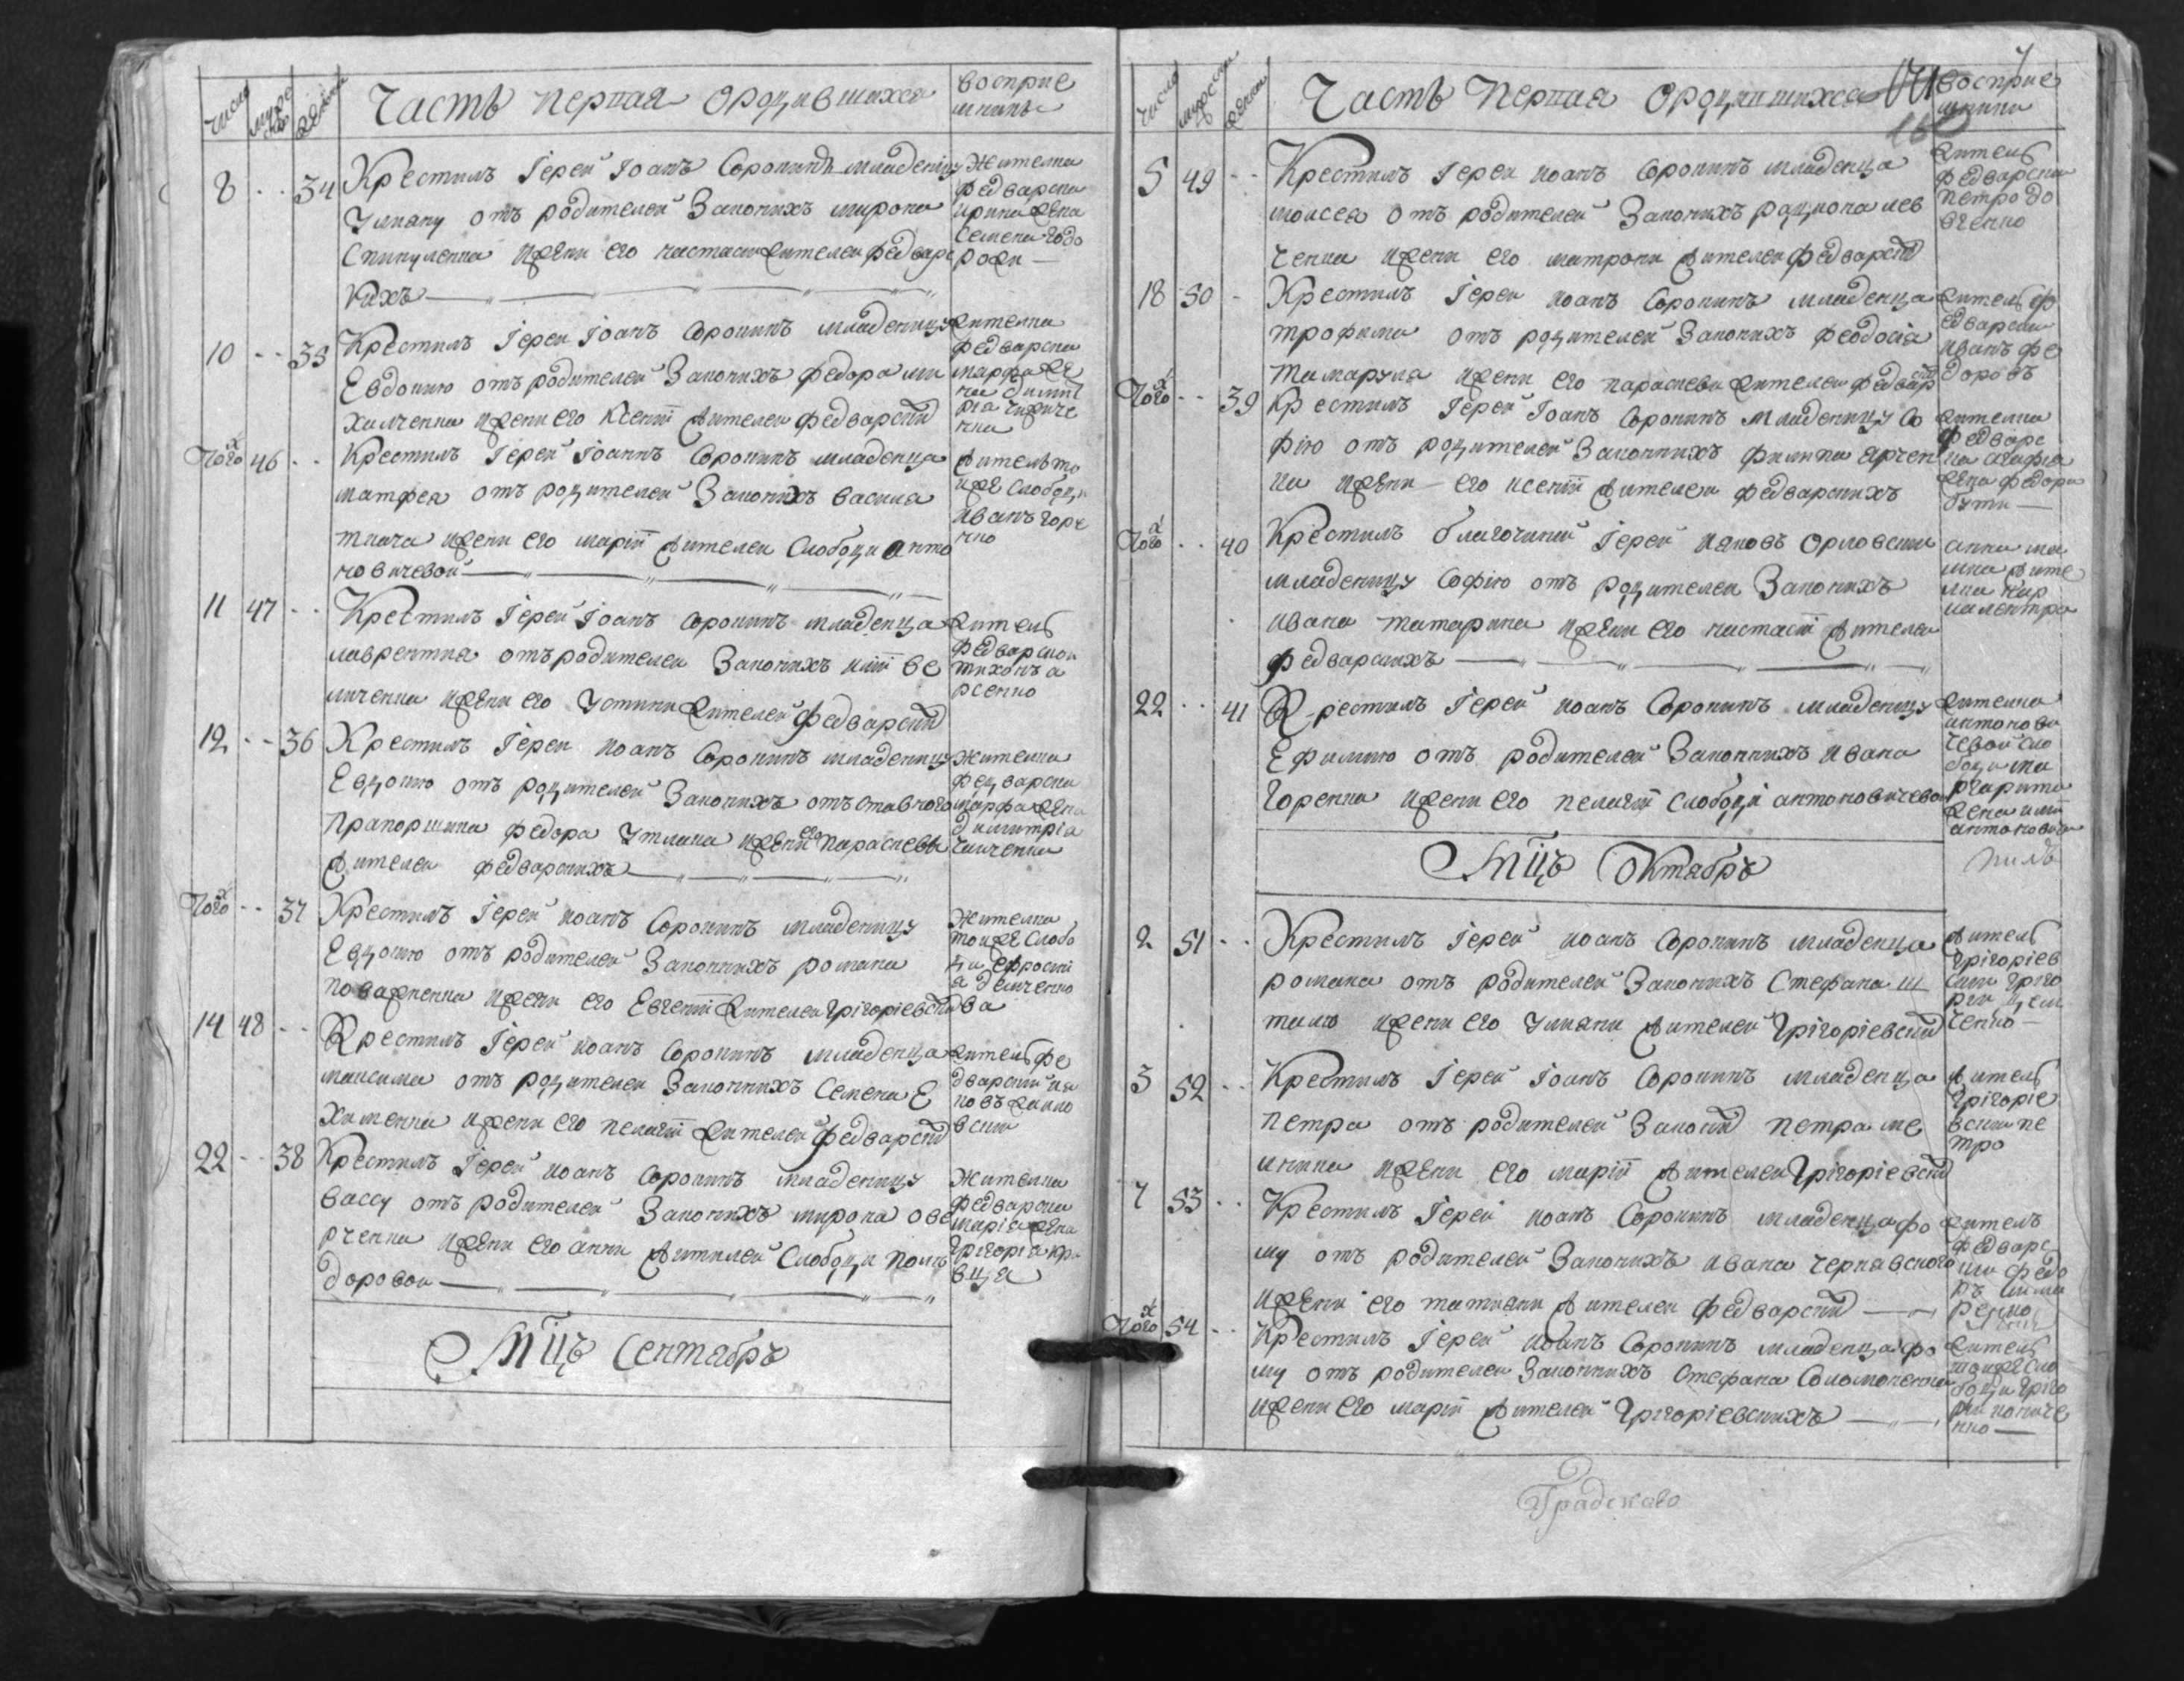 число
муж
женс
Часть первая ородившихся
восприе
мники
8 34 Крестилъ Іерей Іоанъ Сорокинъ младеницу
Улиану отъ родителей Законихъ мирона
жени его настасіи жителей федварс
кихъ
Жителка
федварска
ирина жена
Семена
10 35 Крестилъ Іереи Іоанъ Сорокинъ младеницу
Евдокию отъ родителей Законихъ федора ми
халченка ижени его Ксеніи жителеи федварскихъ
жителка
федварска
марфа же
на
Тогож 46 Крестилъ Іерей Іоаннъ Сорокинъ младенца
матфея отъ родителеи Законихъ василя
ткача ижени его маріи жителеи Слободи анто
новичевой
житель то
иже Слободи
иванъ горе
нко
11 47 Крестилъ Іерей Іоанъ Сорокинъ младенца
лаврентия отъ родителеи Законихъ иліи ве
личенка ижени его Устини жителей федварскихъ
житель
федварскои
тихонъ а
рсенко
12 36 Крестилъ Іереи иоанъ Сорокинъ младеницу
Евдокию отъ родителей Законихъ отъставного
Прапорщика федора Утлика ижени его параскеви
жителеи федварскихъ
Жителка
федварска
марфа жена
димитрія
Тогож 37 Крестилъ Іерей иоанъ Сорокинъ младеницу
Евдокию отъ родителей Законнихъ романа
ижени его Евгеніи жителеи григоріевскихъ
Жителка
тоиже Слобо
ди ефросині
я демченко
ва
14 48 Крестилъ Іерей иоанъ Сорокинъ младенца
максима отъ родителеи Законнихъ Семена Е
хименка ижени его пелагіи жителей федварскихъ
житель фе
дварский ия
ковъ
вский
22 38 Крестилъ Іерей иоанъ Сорокинъ младеницу
вассу отъ родителей Законихъ мирона ове
рченка ижени его анни жителей Слободи Полм
доровои
Жителка
федварска
марія жена
григорія кра
вця
Мцъ Сентабръ
число
мужска
женски
Часть первая ородившихся
восприе
мники
5 49 Крестилъ Іереи иоанъ Сорокинъ младенца
моисея отъ родителей Законихъ радиона лев
ченка ижени его матрони жителеи федварскихъ
житель
федварски
петро до
вгенко
18 50 Крестилъ Іереи иоанъ Сорокинъ младенца
трофима отъ родителей Законихъ феодосія
ижени его параскеви жителеи федварскихъ
житель ф
едварски
иванъ фе
доровъ
Тогож 39 Крестилъ Іерей Іоанъ Сорокинъ младеницу Со
фію отъ родителей Законнихъ филипа ярчен
ка ижени его ксеніи жителеи федварскихъ
жителка
федварс
ка агафия
жена федора
Тогож 40 Крестилъ благочиний Іерей ияковъ Орловски
младеницу Софію отъ родителеи Законихъ
ивана татарина ижени его настасіи жителеи
федварскихъ
22 41 Крестилъ Іерей иоанъ Сорокинъ младеницу
Ефимию отъ родителей Законнихъ ивана
горенка ижени его пелагіи слободи антоновичево
жителка
антонови
чевой сло
боди ма
ргарита
жена иліи
антоновича
Мцъ Октабръ
2 51 Крестилъ Іерей иоанъ Сорокинъ младенца
романа отъ родителей Законихъ Стефана ш
ижени его Улияни жителей григоріевскихъ
житель
григоріев
ски григо
рій
ченко
3 52 Крестилъ Іерей Іоанъ Сорокинъ младенца
петра отъ родителей Законихъ петра ме
лника ижени его маріи жителеи григоріевскихъ
житель
григоріе
вски пе
тро
7 53 Крестилъ Іерей иоанъ Сорокинъ младенца фо
му отъ родителей Законихъ ивана чернявского
ижени его татияни жителеи федварскихъ
житель
федварс
ки федо
ръ
Тогож 54 Крестилъ Іерей иоанъ Сорокинъ младенца фо
му отъ родителеи Законнихъ Стефана Соломоненка
ижени его маріи жителей григоріевскихъ
житель
тоиже сло
боди григо
рий
нко
Традскаго